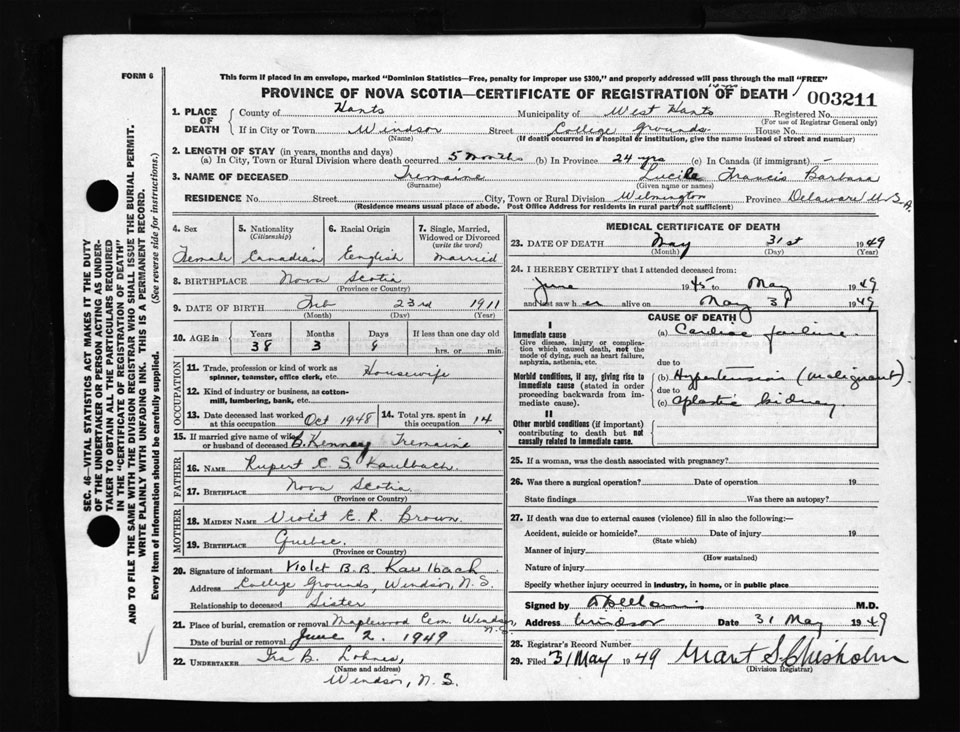 FORM 6
This form if placed in an envelope, marked "Dominion Statistics—Free, penalty for improper use $300," and properly addressed will pass through the mail "FREE"
PROVINCE OF NOVA SCOTIA—CERTIFICATE OF REGISTRATION OF DEATH
003211
1. PLACE OF DEATH
County of Hants Municipality of West Hants Registered No.
(For use of Registrar General only)
If in City or Town Windsor Street College Grounds House No.
(Name) (If death occurred in a hospital or institution, give the name instead of street and number)
2. LENGTH OF STAY (in years, months and days)
(a) In City, Town or Rural Division where death occurred 5 months (b) In Province 24 yrs (c) In Canada (if immigrant) —
3. NAME OF DECEASED Tremaine Lucile Francis Barbara
(Surname) (Given name or names)
RESIDENCE No. Street City, Town or Rural Division Wilmington Province Delaware U.S.A.
(Residence means usual place of abode. Post Office Address for residents in rural parts not sufficient)
4. Sex
Female
5. Nationality
(Citizenship)
Canadian
6. Racial Origin
English
7. Single, Married, Widowed or Divorced
(write the word)
married
8. BIRTHPLACE Nova Scotia
(Province or Country)
9. DATE OF BIRTH Feb 23rd 1911
(Month) (Day) (Year)
10. AGE in Years Months Days If less than one day old
38 3 8 hrs. or min.
OCCUPATION
11. Trade, profession or kind of work as spinner, teamster, office clerk, etc. Housewife
12. Kind of industry or business, as cotton-mill, lumbering, bank, etc.
13. Date deceased last worked at this occupation Oct 1948 14. Total yrs. spent in this occupation 14
15. If married give name of wife or husband of deceased B. Kenney Tremaine
FATHER
16. NAME Rupert C. S. Kaulbach
17. BIRTHPLACE Nova Scotia
(Province or Country)
MOTHER
18. MAIDEN NAME Violet E. R. Brown
19. BIRTHPLACE Quebec
(Province or Country)
20. Signature of informant Violet B.B. Kaulbach
Address College Grounds, Windsor, N.S.
Relationship to deceased Sister
21. Place of burial, cremation or removal Maplewood Cem. Windsor, N.S.
Date of burial or removal June 2, 1949
22. UNDERTAKER Ira B. Lohnes,
(Name and address)
Windsor, N.S.
MEDICAL CERTIFICATE OF DEATH
23. DATE OF DEATH May 31st 1949
(Month) (Day) (Year)
24. I HEREBY CERTIFY that I attended deceased from:
June 1945 to May 1949
and last saw her alive on May 31 1949
CAUSE OF DEATH
I
Immediate cause
Give disease, injury or complication which caused death, not the mode of dying, such as heart failure, asphyxia, asthenia, etc.
(a) Cardiac failure
due to
Morbid conditions, if any, giving rise to immediate cause (stated in order proceeding backwards from immediate cause).
(b) Hypertension (malignant).
due to
(c) aplastic kidney
II
Other morbid conditions (if important) contributing to death but not causally related to immediate cause.
25. If a woman, was the death associated with pregnancy?
26. Was there a surgical operation? Date of operation 19
State findings Was there an autopsy?
27. If death was due to external causes (violence) fill in also the following:—
Accident, suicide or homicide? Date of injury 19
(State which)
Manner of injury
(How sustained)
Nature of injury
Specify whether injury occurred in industry, in home, or in public place
Signed by M.D.
Address Windsor Date 31 May 1949
28. Registrar's Record Number
29. Filed 31 May 1949 Grant S. Chisholm
(Division Registrar)
SEC. 46—VITAL STATISTICS ACT MAKES IT THE DUTY
OF THE UNDERTAKER OR PERSON ACTING AS UNDERTAKER
TO OBTAIN ALL THE PARTICULARS REQUIRED
IN THE "CERTIFICATE OF REGISTRATION OF DEATH"
AND TO FILE THE SAME WITH THE DIVISION REGISTRAR WHO SHALL ISSUE THE BURIAL PERMIT.
WRITE PLAINLY WITH UNFADING INK. THIS IS A PERMANENT RECORD.
Every item of information should be carefully supplied. (See reverse side for instructions.)